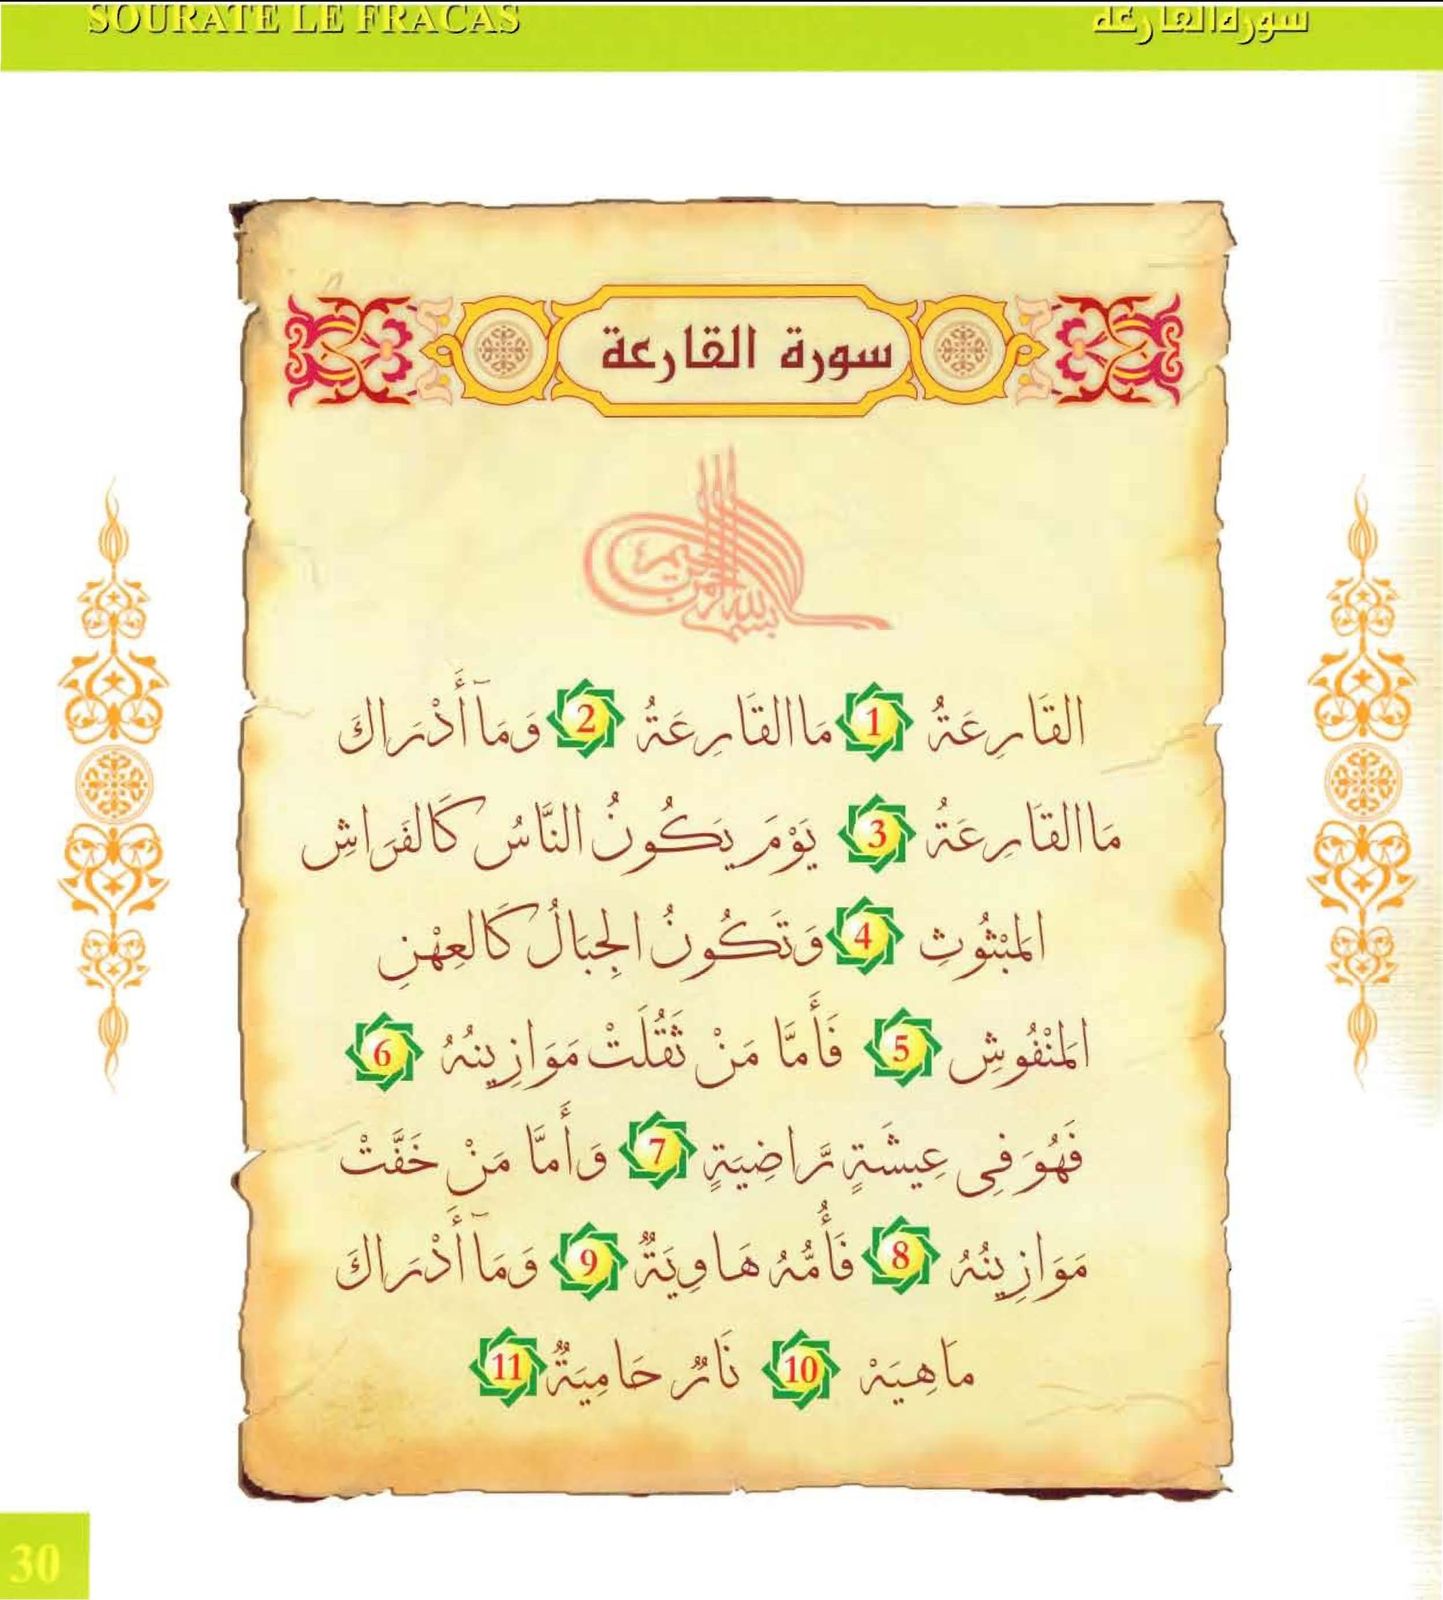 SOURATE LE FRACAS
سورة القارعة
سورة القارعة
بسم الله الرحمن الرحيم
القَارِعَةُ 1 مَا القَارِعَةُ 2 وَمَآ أَدْرَاكَ
مَا القَارِعَةُ 3 يَوْمَ يَكُونُ النَّاسُ كَالفَرَاشِ
المَبْثُوثِ 4 وَتَكُونُ الجِبَالُ كَالعِهْنِ
المَنْفُوشِ 5 فَأَمَّا مَنْ ثَقُلَتْ مَوَازِينُهُ 6
فَهُوَ فِي عِيشَةٍ رَّاضِيَةٍ 7 وَأَمَّا مَنْ خَفَّتْ
مَوَازِينُهُ 8 فَأُمُّهُ هَاوِيَةٌ 9 وَمَآ أَدْرَاكَ
مَاهِيَهْ 10 نَارٌ حَامِيَةٌ 11
30